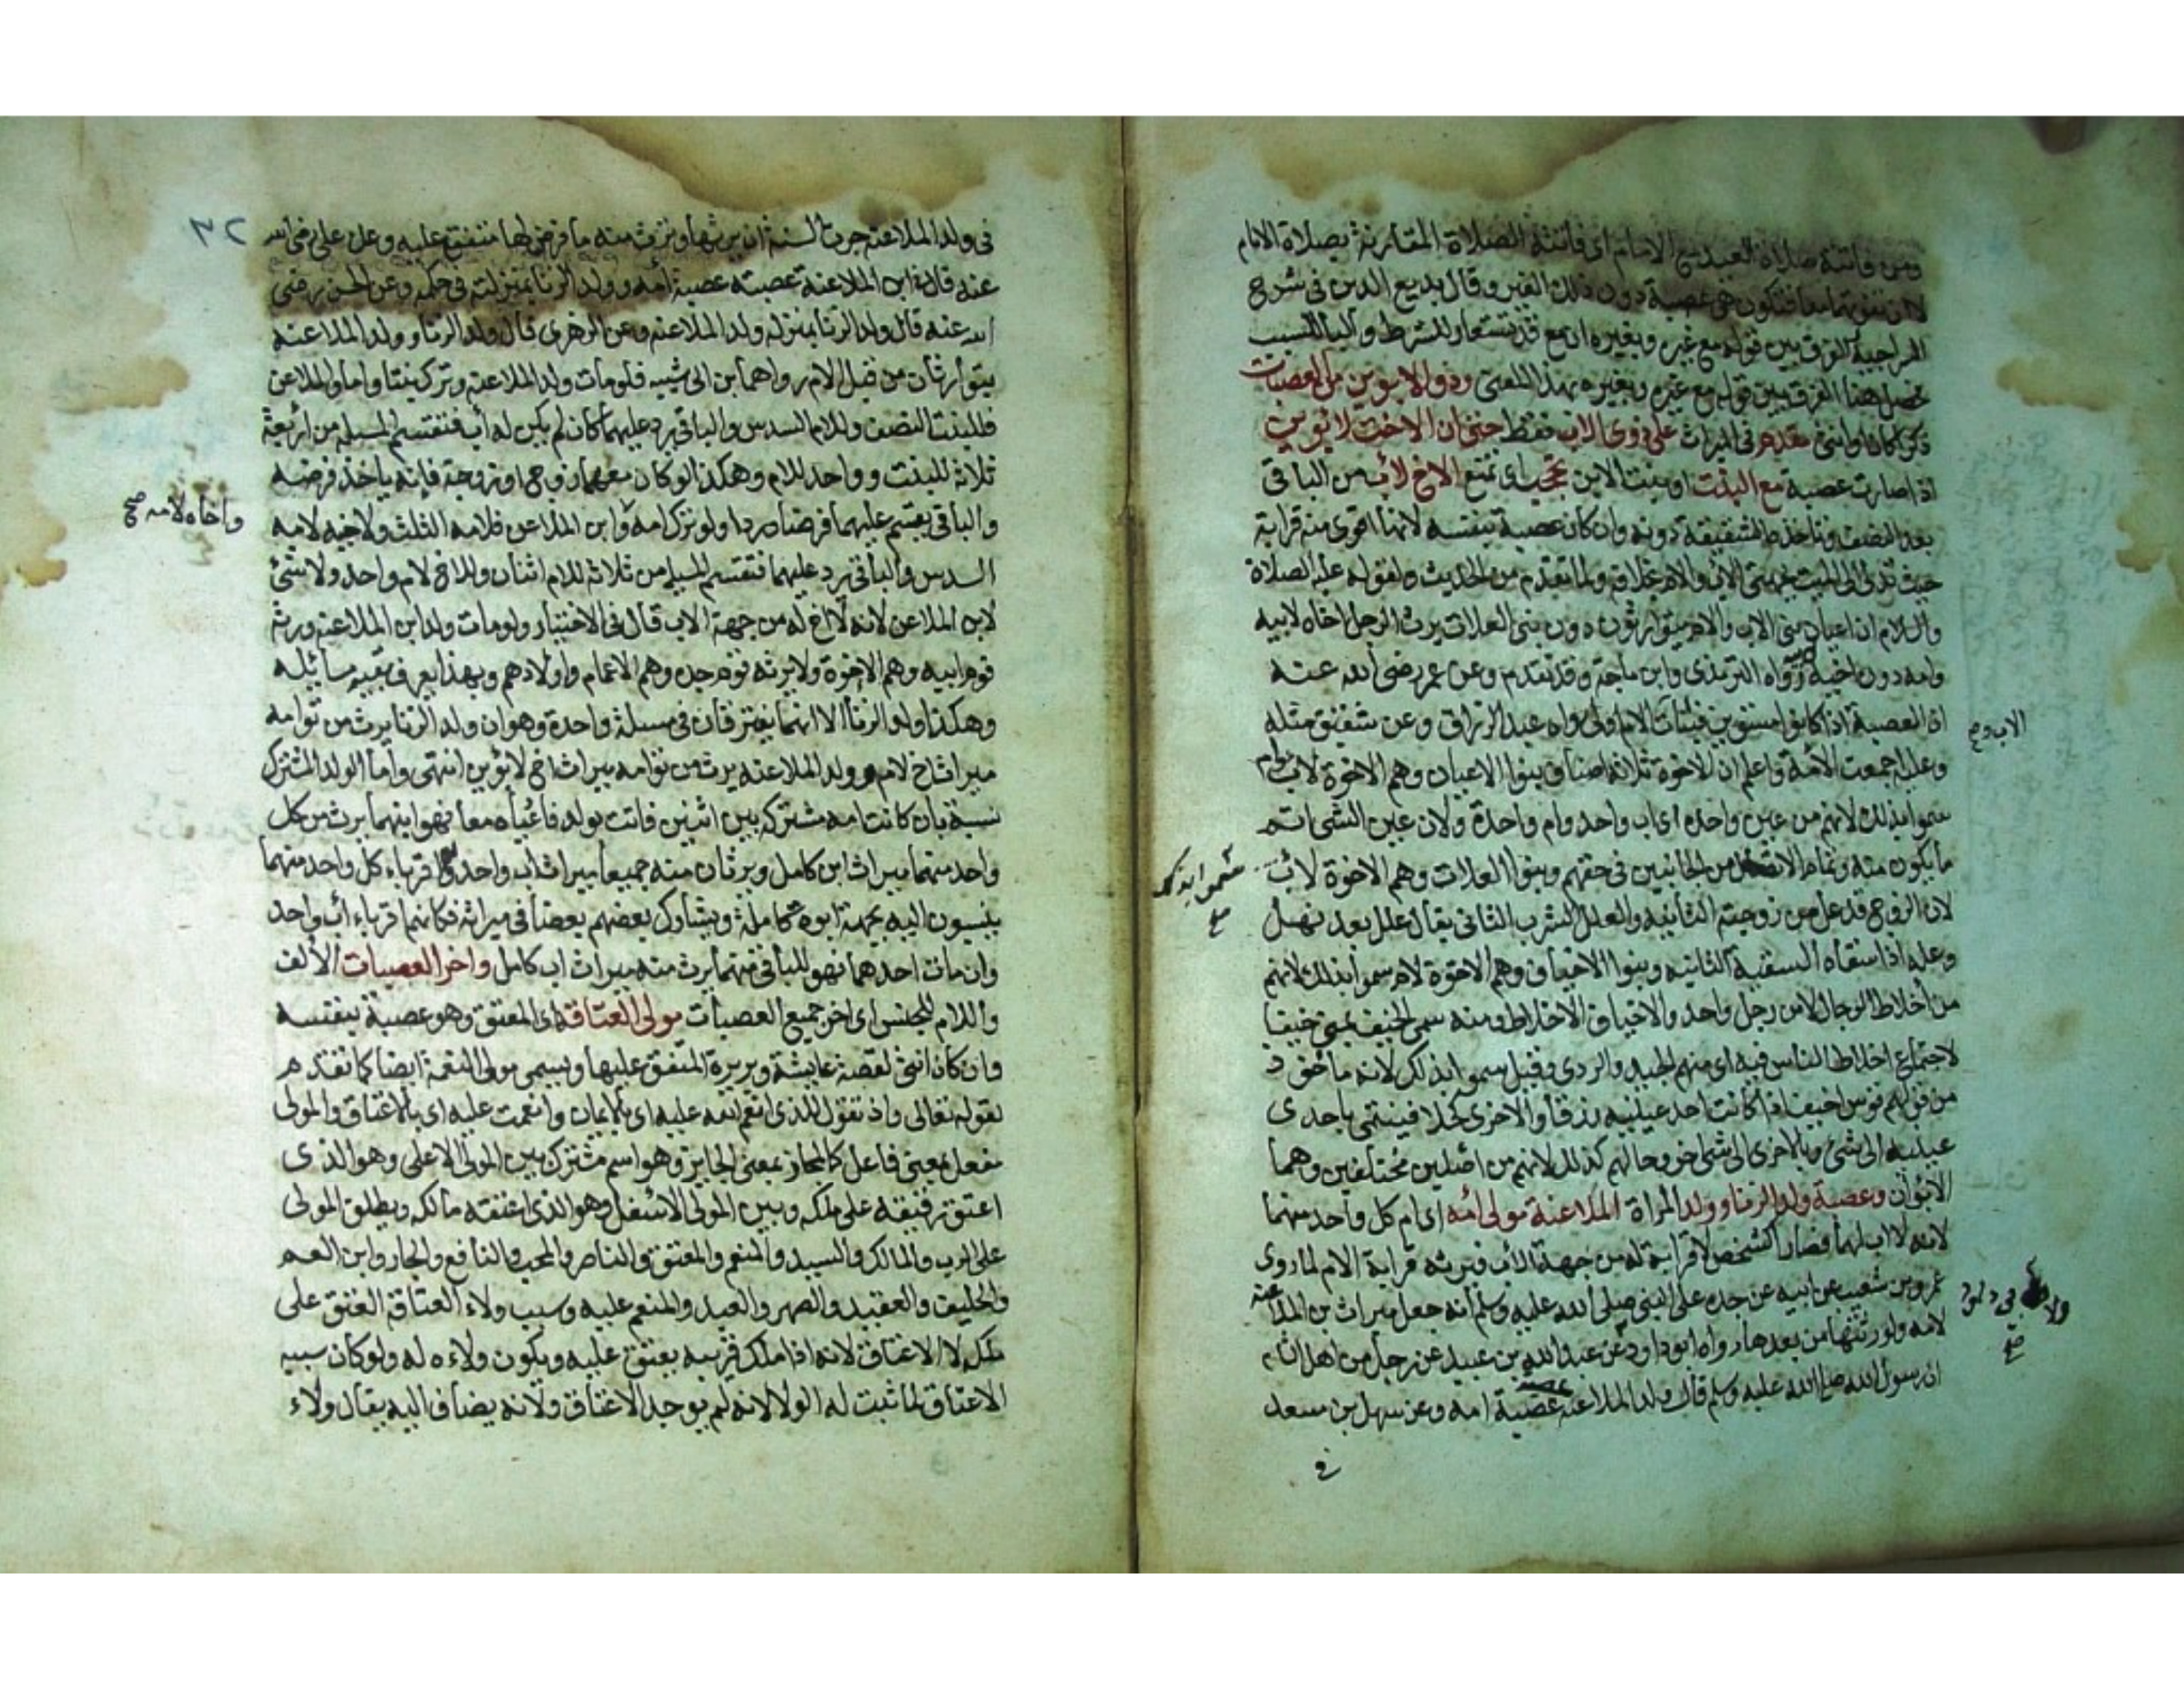 ومن فاتته صلاة العيد مع الامام اى فاتته الصلاة المقارنة بصلاة الامام
لا ان تفوتهما معا فتكون هى عصبة دون ذلك الغير وقال بديع الدين فى شرح
السراجية الفرق بين قوله مع غيره وبغيره ان مع قد تستعار للشرط والبا للسبب
فحصل هذا الفرق بين قوله مع غيره وبغيره بهذا المعنى وذو الابوين من العصبات
ذكرا كان او انثى مقدم فى الميراث على ذوى الاب فقط حتى ان الاخت لابوين
اذا صارت عصبة مع البنت او بنت الابن تحجب اى تمنع الاخ لاب من الباقى
بعد النصف وتاخذه الشقيقة دونه وان كان عصبة بنفسه لانها اقوى منه قرابة
حيث تدلى الى الميت بجهتى الاب والام خلافه ولما تقدم من الحديث ولقوله عليه الصلاة
والسلام ان اعيان بنى الاب والام يتوارثون دون بنى العلات يرث الرجل اخاه لابيه
وامه دون اخيه لابيه رواه الترمذى وابن ماجة وقد تقدم وعن عمر رضى الله عنه
ان العصبة اذا كانوا مستويين فبنات الام اولى رواه عبد الرزاق وعن شقيق مثله
الاب وح
وعليه اجمعت الأمة واعلم ان الاخوة ثلاثة اصناف بنوا الاعيان وهم الاخوة لاب وام
سموا بذلك لانهم من عين واحدة اى اب واحد وام واحدة ولان عين الشى اتم
ما يكون منه وتمام الاتصال من الجانبين فى حقهم وبنوا العلات وهم الاخوة لاب
سموا بذلك
صح
لان الزوج قد عل من زوجته الثانية والعلل الشرب الثانى يقال علل بعد نهل
وعله اذا سقاه السقية الثانيه وبنوا الاخياف وهم الاخوة لام سموا بذلك لانهم
من اخلاط الرجال لا من رجل واحد والاخياف الاختلاط ومنه سمى الخيف بمنى خيفا
لاجتماع اخلاط الناس فيه اى منهم الجيد والردى وقيل سموا بذلك لانه ماخوذ
من قولهم فرس اخيف اذا كانت احد عينيه زرقا والاخرى كحلا فينتمى باحدى
عينيه الى شئ وبالاخرى الى شئ اخر وحالهم كذلك لانهم من اصلين مختلفين وهما
الابوان وعصبة ولد الزنا وولد المراة الملاعنة مولى امه اى ام كل واحد منهما
لانه لا اب لهما فصارا كشخص لا قرابة له من جهة الاب فيرثه قرابة الام لما روى
عمرو بن شعيب عن ابيه عن جده عن النبى صلى الله عليه وسلم انه جعل ميراث بن الملاعنة
لامه ولورثتها من بعدها رواه ابو داود عن عبد الله بن عبيد عن رجل من اهل الشام
ولابى داود
صح
ان رسول الله صلى الله عليه وسلم قال ولد الملاعنة عصبته عصبة امه وعن سهل بن سعد
فى
٣٢
فى ولد الملاعنة جرت السنة ان يرثها وترث منه ما فرض لها متفق عليه وعن على رضى الله
عنه قال ابن الملاعنة عصبته عصبة امه وولد الزنا بمنزلته فى حكمه وعن الحسن رضى
الله عنه قال ولد الزنا بمنزلة ولد الملاعنة وعن الزهرى قال ولد الزنا وولد الملاعنة
يتوارثان من قبل الام رواهما ابن ابى شيبه فلو مات ولد الملاعنة وترك بنتا واما والملاعن
فللبنت النصف وللام السدس والباقى يرد عليهما كان لم يكن له اب فتقسم المسئلة من اربعة
ثلاثة للبنت وواحد للام وهكذا لو كان معهما زوج او زوجة فانه ياخذ فرضه
واخاه لامه صح
والباقى يقسم عليهما فرضا وردا ولو ترك امه وابن الملاعن فلامه الثلث ولاخيه لامه
السدس والباقى يرد عليهما فتقسم المسئلة من ثلاثة للام اثنان وللاخ لام واحد ولا شئ
لابن الملاعن لانه لا اخ له من جهة الاب قال فى الاختيار ولو مات ولد ابن الملاعنة ورثه
قوم ابيه وهم الاخوة ولا يرثه قوم جده وهم الاعمام واولادهم وبهذا يعرف بقية مسائله
وهكذا ولد الزنا الا انهما يفترقان فى مسئلة واحدة وهو ان ولد الزنا يرث من توامه
ميراث اخ لام وولد الملاعنه يرث من توامه ميراث اخ لابوين انتهى واما الولد المشترك
نسبة بان كانت امه مشتركة بين اثنين فاتت بولد فادعياه معا فهو ابنهما يرث من كل
واحد منهما ميراث ابن كامل ويرثان منه جميعا ميراث اب واحد واقرباء كل واحد منهما
ينسبون اليه بجهة ابوه كاملة ويشارك بعضهم بعضا فى ميراثه فكانهما اقرباء اب واحد
وان مات احدهما فهو للباقى منهما يرث منه ميراث اب كامل واخر العصبات الالف
واللام للجنس اى اخر جميع العصبات مولى العتاقة اى المعتق وهو عصبة بنفسه
وان كان انثى لقصة عايشة وبريرة المتفق عليها ويسمى مولى النعمة ايضا كما تقدم
لقوله تعالى واذ تقول للذى انعم الله عليه اى بالايمان وانعمت عليه اى بالاعتاق والمولى
مفعل بمعنى فاعل كالمجاز بمعنى الجايز وهو اسم مشترك بين المولى الاعلى وهو الذى
اعتق رقيقه على ملكه وبين المولى الاسفل وهو الذى اعتقه مالكه ويطلق المولى
على الرب والمالك والسيد والمنعم والمعتق والناصر والمحب والتابع والجار وابن العم
والحليف والعقيد والصهر والعبد والمنعم عليه وسبب ولاء العتاقة العتق على
ملكه لا الاعتاق لانه اذا ملك قريبه يعتق عليه ويكون ولاءه له ولو كان سببه
الاعتاق لما ثبت له الولا لانه لم يوجد الاعتاق ولانه يضاف اليه يقال ولاء